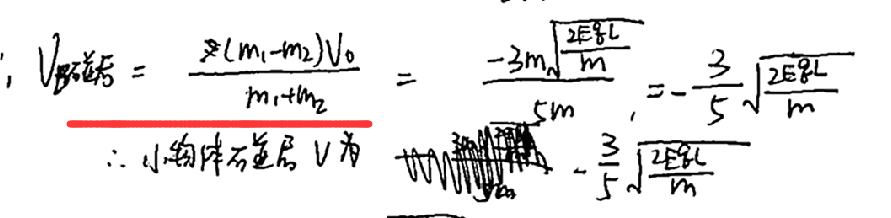 ∴ V碰后 = (m₁-m₂)V₀/(m₁+m₂) = -3m√(2EqL/m)/5m = -3/5 √(2EqL/m)
∴ 小物体碰后 V为 -3/5 √(2EqL/m)